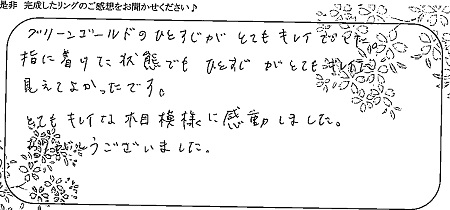 是非 完成したリングのご感想をお聞かせください♪
グリーンゴールドのひとすじがとてもキレイでした
指に着けた状態でもひとすじがとてもキレイに
見えてよかったです。
とてもキレイな木目模様に感動しました。
うございました。